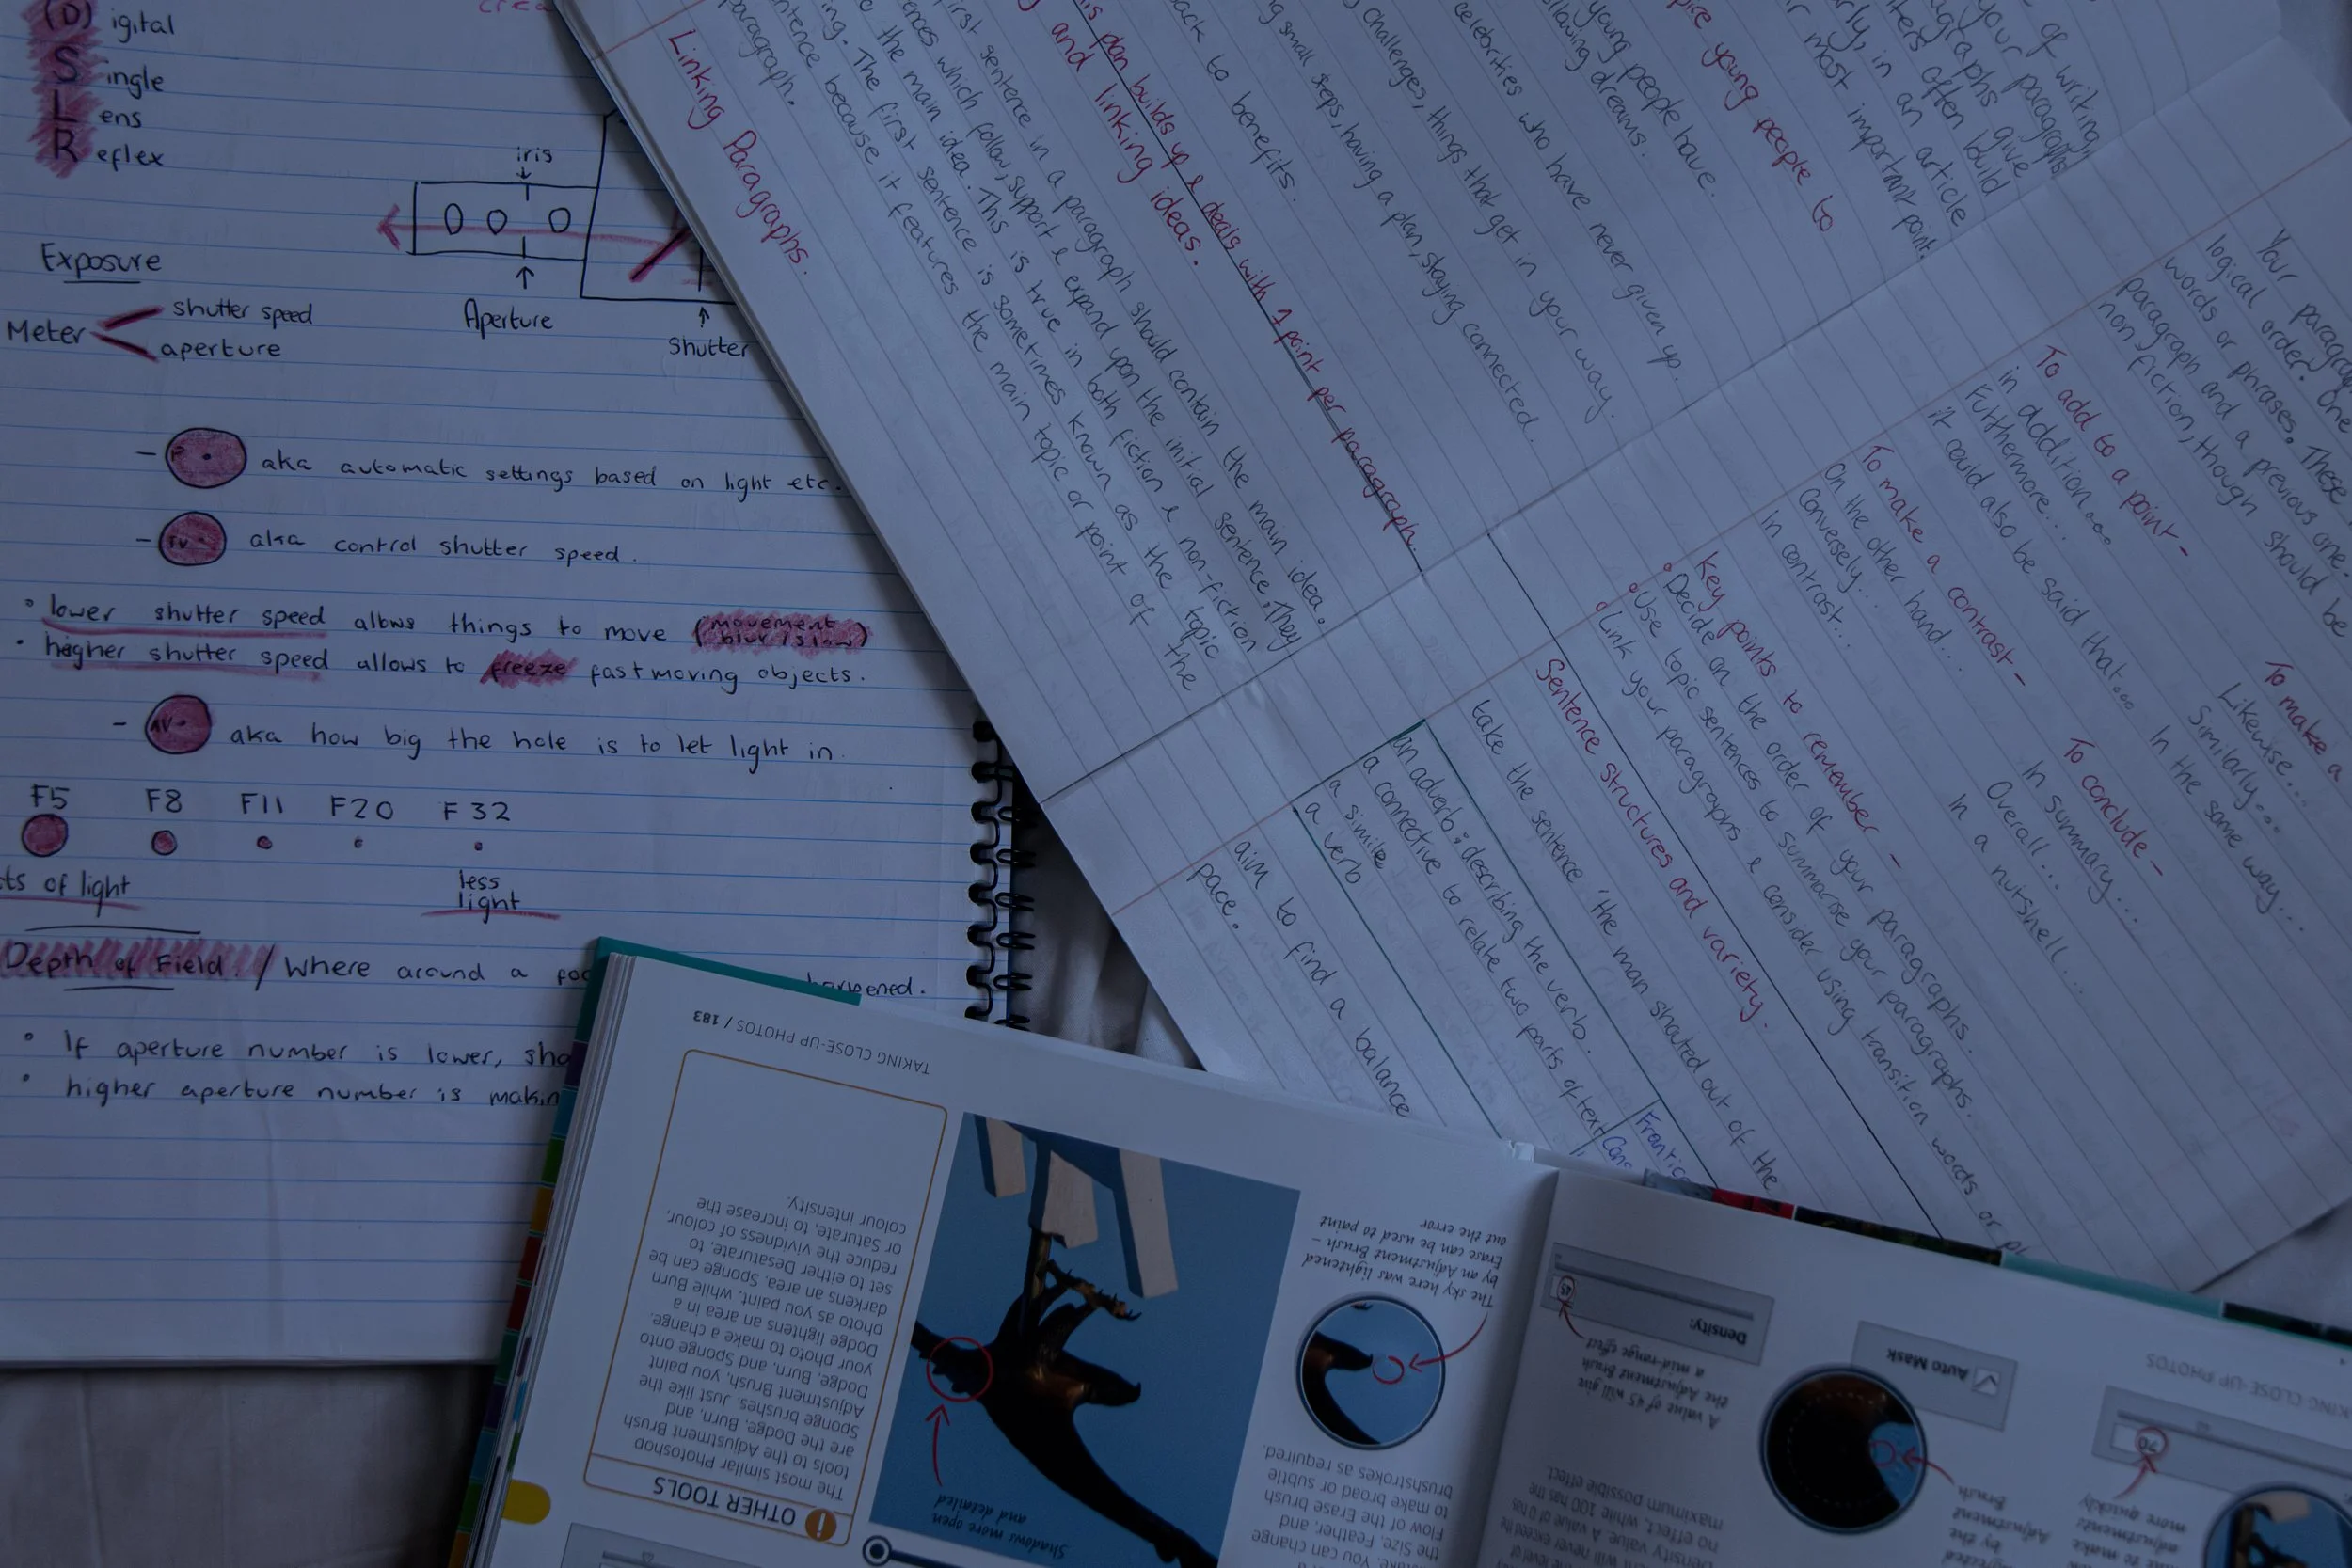 (D) igital
S ingle
L ens
R eflex
iris
Aperture
Shutter
Exposure
Meter
shutter speed
aperture
- P aka automatic settings based on light etc.
- TV aka control shutter speed.
• lower shutter speed allows things to move (movement blur / slow)
• higher shutter speed allows to freeze fast moving objects.
- AV aka how big the hole is to let light in.
F5 F8 F11 F20 F32
ts of light
less
light
Depth of Field / Where around a happened.
• If aperture number is lower,
• higher aperture number is
Linking Paragraphs.
first sentence in a paragraph should contain the main idea.
which follow, support & expand upon the initial sentence. They
the main idea. This is true in both fiction & non-fiction
The first sentence is sometimes known as the topic
sentence because it features the main topic or point of the
paragraph.
plan builds up & deals with 1 point per paragraph.
and linking ideas.
back to benefits.
small steps, having a plan, staying connected.
challenges, things that get in your way.
celebrities who have never given up.
young people have.
following dreams.
young people to
of writing
your paragraphs
paragraphs give
often build
in an article
most important point.
logical order. One
words or phrases. These
paragraph and a previous one.
non-fiction, though should be
To add to a point -
in addition...
Furthermore...
it could also be said that...
To make a contrast -
On the other hand...
Conversely...
In contrast...
To make a
Likewise...
Similarly...
In the same way...
To conclude -
In summary...
Overall...
In a nutshell...
Key points to remember -
• Decide on the order of your paragraphs.
• Use topic sentences to summarise your paragraphs.
• Link your paragraphs & consider using transition words or
Sentence structures and variety.
take the sentence 'the man shouted out of the
an adverb; describing the verb.
a connective to relate two parts of text
a simile
a verb
aim to find a balance
pace.
TAKING CLOSE-UP PHOTOS / 183
OTHER TOOLS
The most similar Photoshop
tools to the Adjustment Brush
are the Dodge, Burn, and
Sponge brushes. Just like the
Adjustment Brush, you paint
Dodge, Burn, and Sponge onto
your photo to make a change.
Dodge lightens an area in a
photo as you paint, while Burn
darkens an area. Sponge can be
set to either Desaturate, to
reduce the vividness of colour,
or Saturate, to increase the
colour intensity.
Shadows more open
and detailed
The sky here was lightened
by an Adjustment Brush –
Erase can be used to paint
out the error
You can change
the Size, Feather, and
Flow of the Erase brush
to make broad or subtle
brushstrokes as required.
Density:
45
A value of 45 will give
the Adjustment Brush
a mid-range effect
Auto Mask
no effect, while 100 has the
maximum possible effect.
by the
Adjustment
Brush
70
adjustments
more quickly
CLOSE-UP PHOTOS